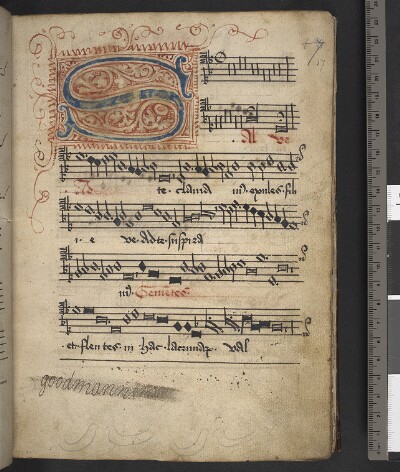 S
17
Al ve
Ad te clama mus exules filii
i e ve Ad te suspira
mus Gemētes
et flentes in hac lacrimarum val
goodmann